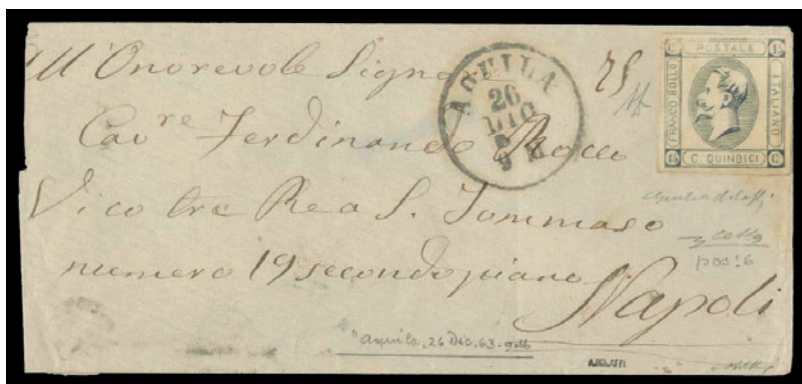 All' Onorevole Signor
Cav.re Ferdinando Rocco
Vico tre Re a S. Tommaso
numero 19 secondo piano
Napoli
AQUILA
26
DIC
9 M
POSTALE
FRANCO BOLLO
ITALIANO
C. QUINDICI
15
C
pos: 6
"Aquila, 26 Dic. 63